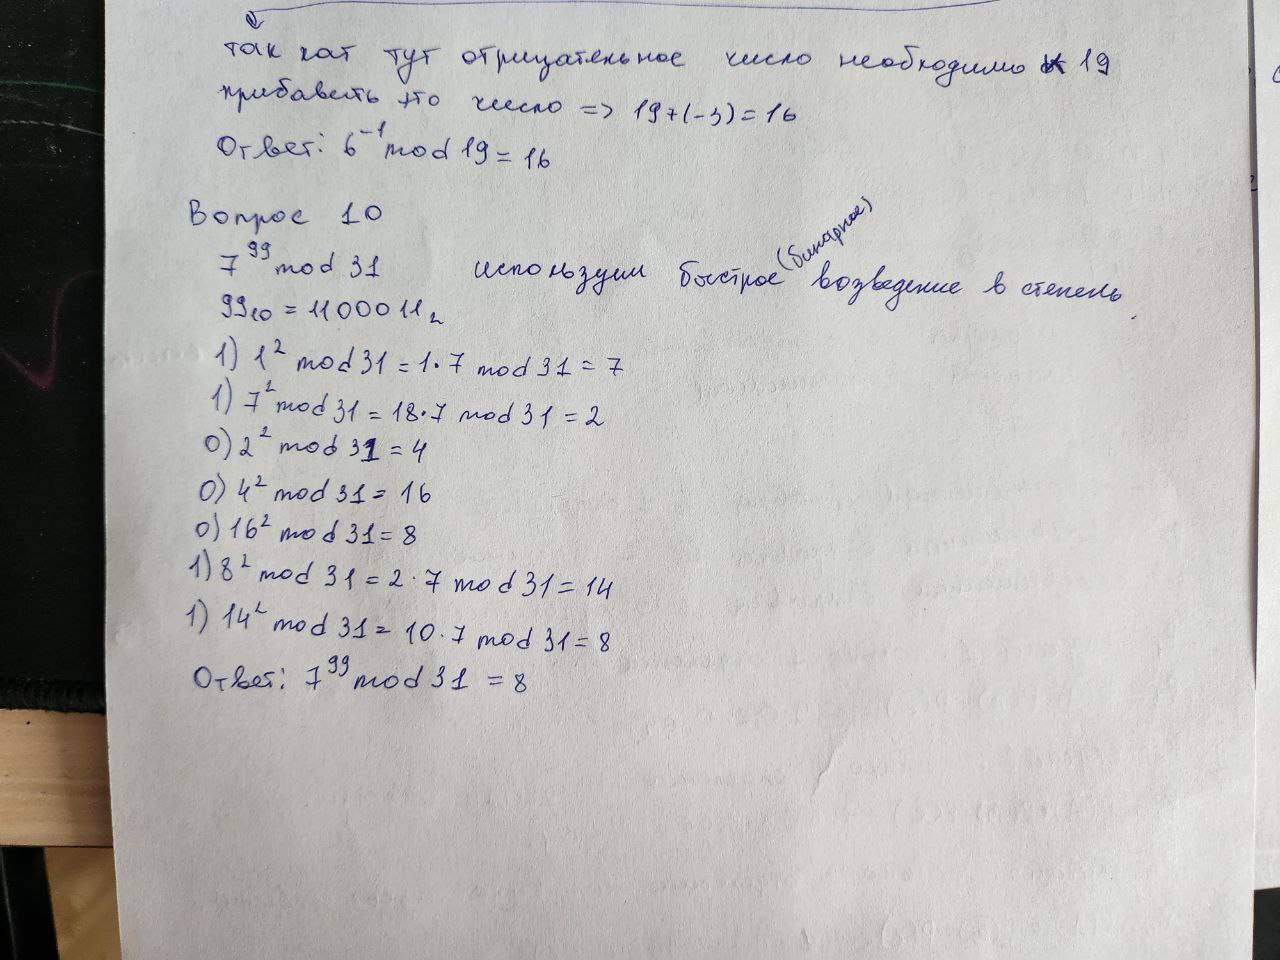 так кат тут отрицательное число необходимо к 19
прибавить это число => 19+(-3)=16
Ответ: 6⁻¹ mod 19 = 16
Вопрос 10
7⁹⁹ mod 31 используем быстрое (бинарное) возведение в степень
99₁₀ = 1100011₂
1) 1² mod 31 = 1·7 mod 31 = 7
1) 7² mod 31 = 18·7 mod 31 = 2
0) 2² mod 31 = 4
0) 4² mod 31 = 16
0) 16² mod 31 = 8
1) 8² mod 31 = 2·7 mod 31 = 14
1) 14² mod 31 = 10·7 mod 31 = 8
Ответ: 7⁹⁹ mod 31 = 8